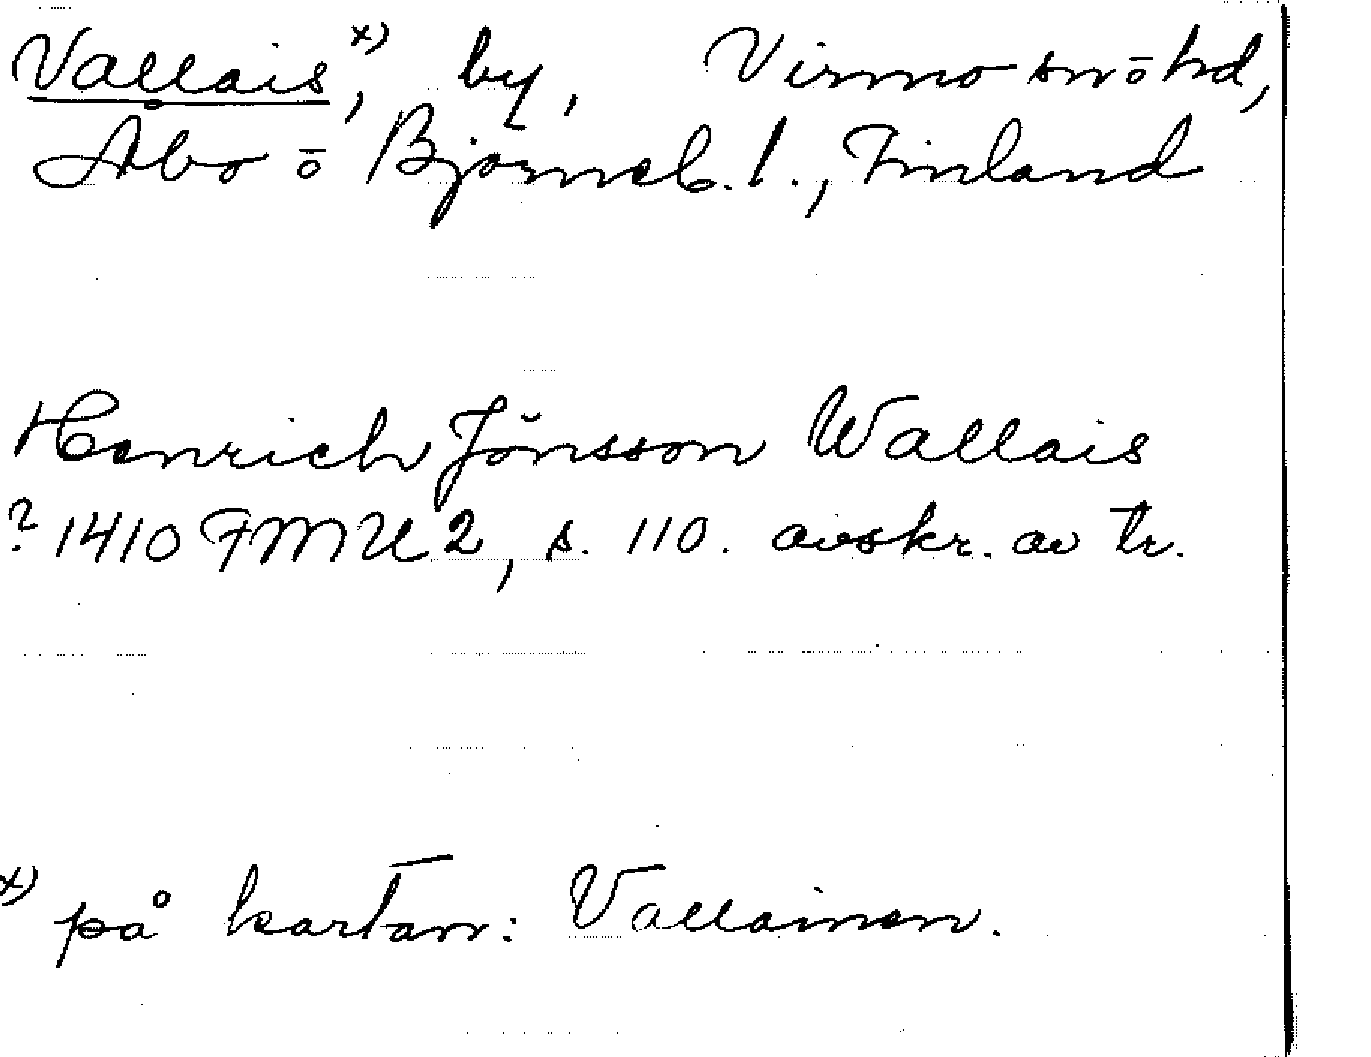 Vallais x), by, Virmo sn o hd,
Åbo o Björneb. l., Finland
Henrich Jönsson Wallais
? 1410 FMU 2, s. 110. avskr. av tr.
x) på kartan: Vallainen.